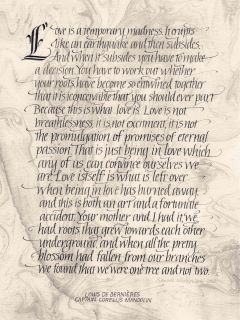 Love is a temporary madness. It erupts
like an earthquake and then subsides.
And when it subsides you have to make
a decision. You have to work out whether
your roots have become so entwined together
that it is inconceivable that you should ever part.
Because this is what love is. Love is not
breathlessness, it is not excitement, it is not
the promulgation of promises of eternal
passion. That is just being in love which
any of us can convince ourselves we
are. Love itself is what is left over
when being in love has burned away,
and this is both an art and a fortunate
accident. Your mother and I had it, we
had roots that grew towards each other
underground and when all the pretty
blossom had fallen from our branches
we found that we were one tree and not two.
LOUIS DE BERNIÈRES
CAPTAIN CORELLI'S MANDOLIN